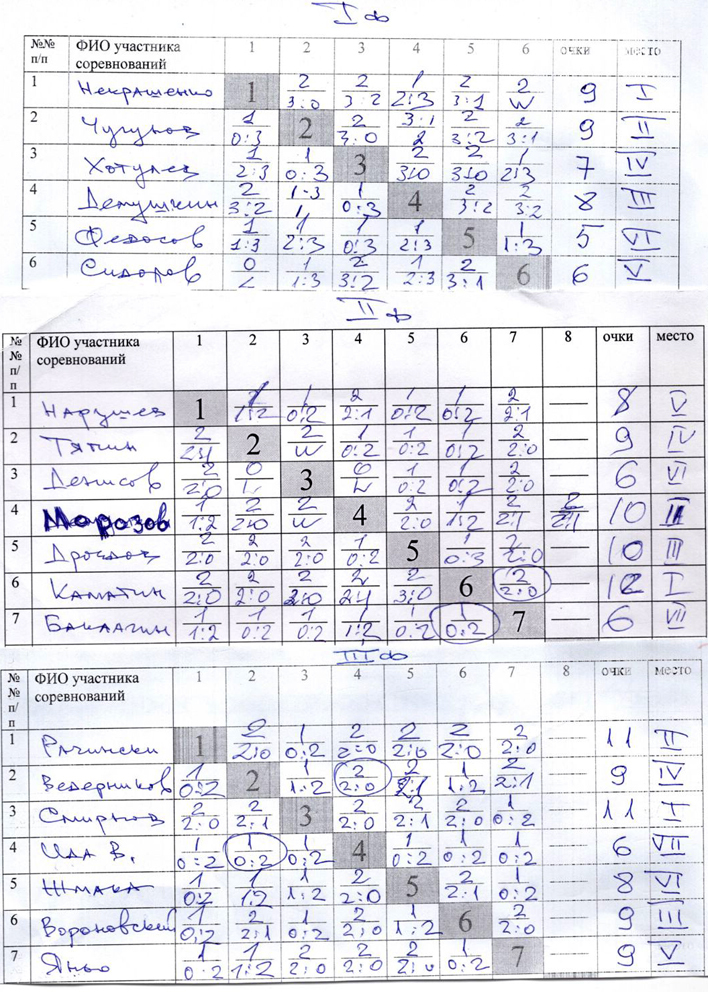 I ф
№№ ФИО участника 1 2 3 4 5 6 очки место
п/п соревнований
1 Некрашенко 1 2 3:0 2 3:2 1 2:3 2 3:1 2 W 9 I
2 Чугунов 1 0:3 2 2 3:0 3:1 2 2 3:2 2 3:1 9 II
3 Хотулев 1 2:3 1 0:3 3 2 3:0 2 3:0 1 2:3 7 IV
4 Демушкин 2 3:2 1-3 1 1 0:3 4 2 3:2 2 3:2 8 III
5 Федосов 1 1:3 1 2:3 1 0:3 1 2:3 5 1 1:3 5 VI
6 Сидоров 0 L 1 1:3 2 3:2 1 2:3 2 3:1 6 6 V
II ф
№ ФИО участника 1 2 3 4 5 6 7 8 очки место
№ соревнований
п/
п
1 Нарушев 1 1 1:2 1 0:2 2 2:1 1 0:2 1 0:2 2 2:1 — 8 V
2 Тяпин 2 2:1 2 2 W 1 0:2 1 0:2 1 0:2 2 2:0 — 9 IV
3 Денисов 2 2:0 0 L 3 0 L 1 0:2 1 0:2 2 2:0 — 6 VI
4 Морозов 1 1:2 2 2:0 2 W 4 2 2:0 1 1:2 2 2:1 2 2:1 10 II
5 2 2:0 2 2:0 2 2:0 1 0:2 5 1 0:3 2 2:0 — 10 III
6 Каматин 2 2:0 2 2:0 2 2:0 2 2:1 2 3:0 6 2 2:0 — 12 I
7 1 1:2 1 0:2 1 0:2 1 1:2 1 0:2 1 0:2 7 — 6 VII
III ф
№ ФИО участника 1 2 3 4 5 6 7 8 очки место
№ соревнований
п/
п
1 Рачински 1 2 2:0 1 0:2 2 2:0 2 2:0 2 2:0 2 2:0 — 11 II
2 Ведерников 1 0:2 2 1 1:2 2 2:0 2 2:1 1 1:2 2 2:1 — 9 IV
3 Смирнов 2 2:0 2 2:1 3 2 2:0 2 2:1 2 2:0 1 0:2 — 11 I
4 Ица В. 1 0:2 1 0:2 1 0:2 4 1 0:2 1 0:2 1 0:2 — 6 VII
5 Жмака 1 0:2 1 1:2 1 1:2 2 2:0 5 2 2:1 1 0:2 — 8 VI
6 Вороновский 1 0:2 2 2:1 1 0:2 2 2:0 1 1:2 6 2 2:0 — 9 III
7 Яньо 1 0:2 1 1:2 2 2:0 2 2:0 2 2:0 1 0:2 7 — 9 V